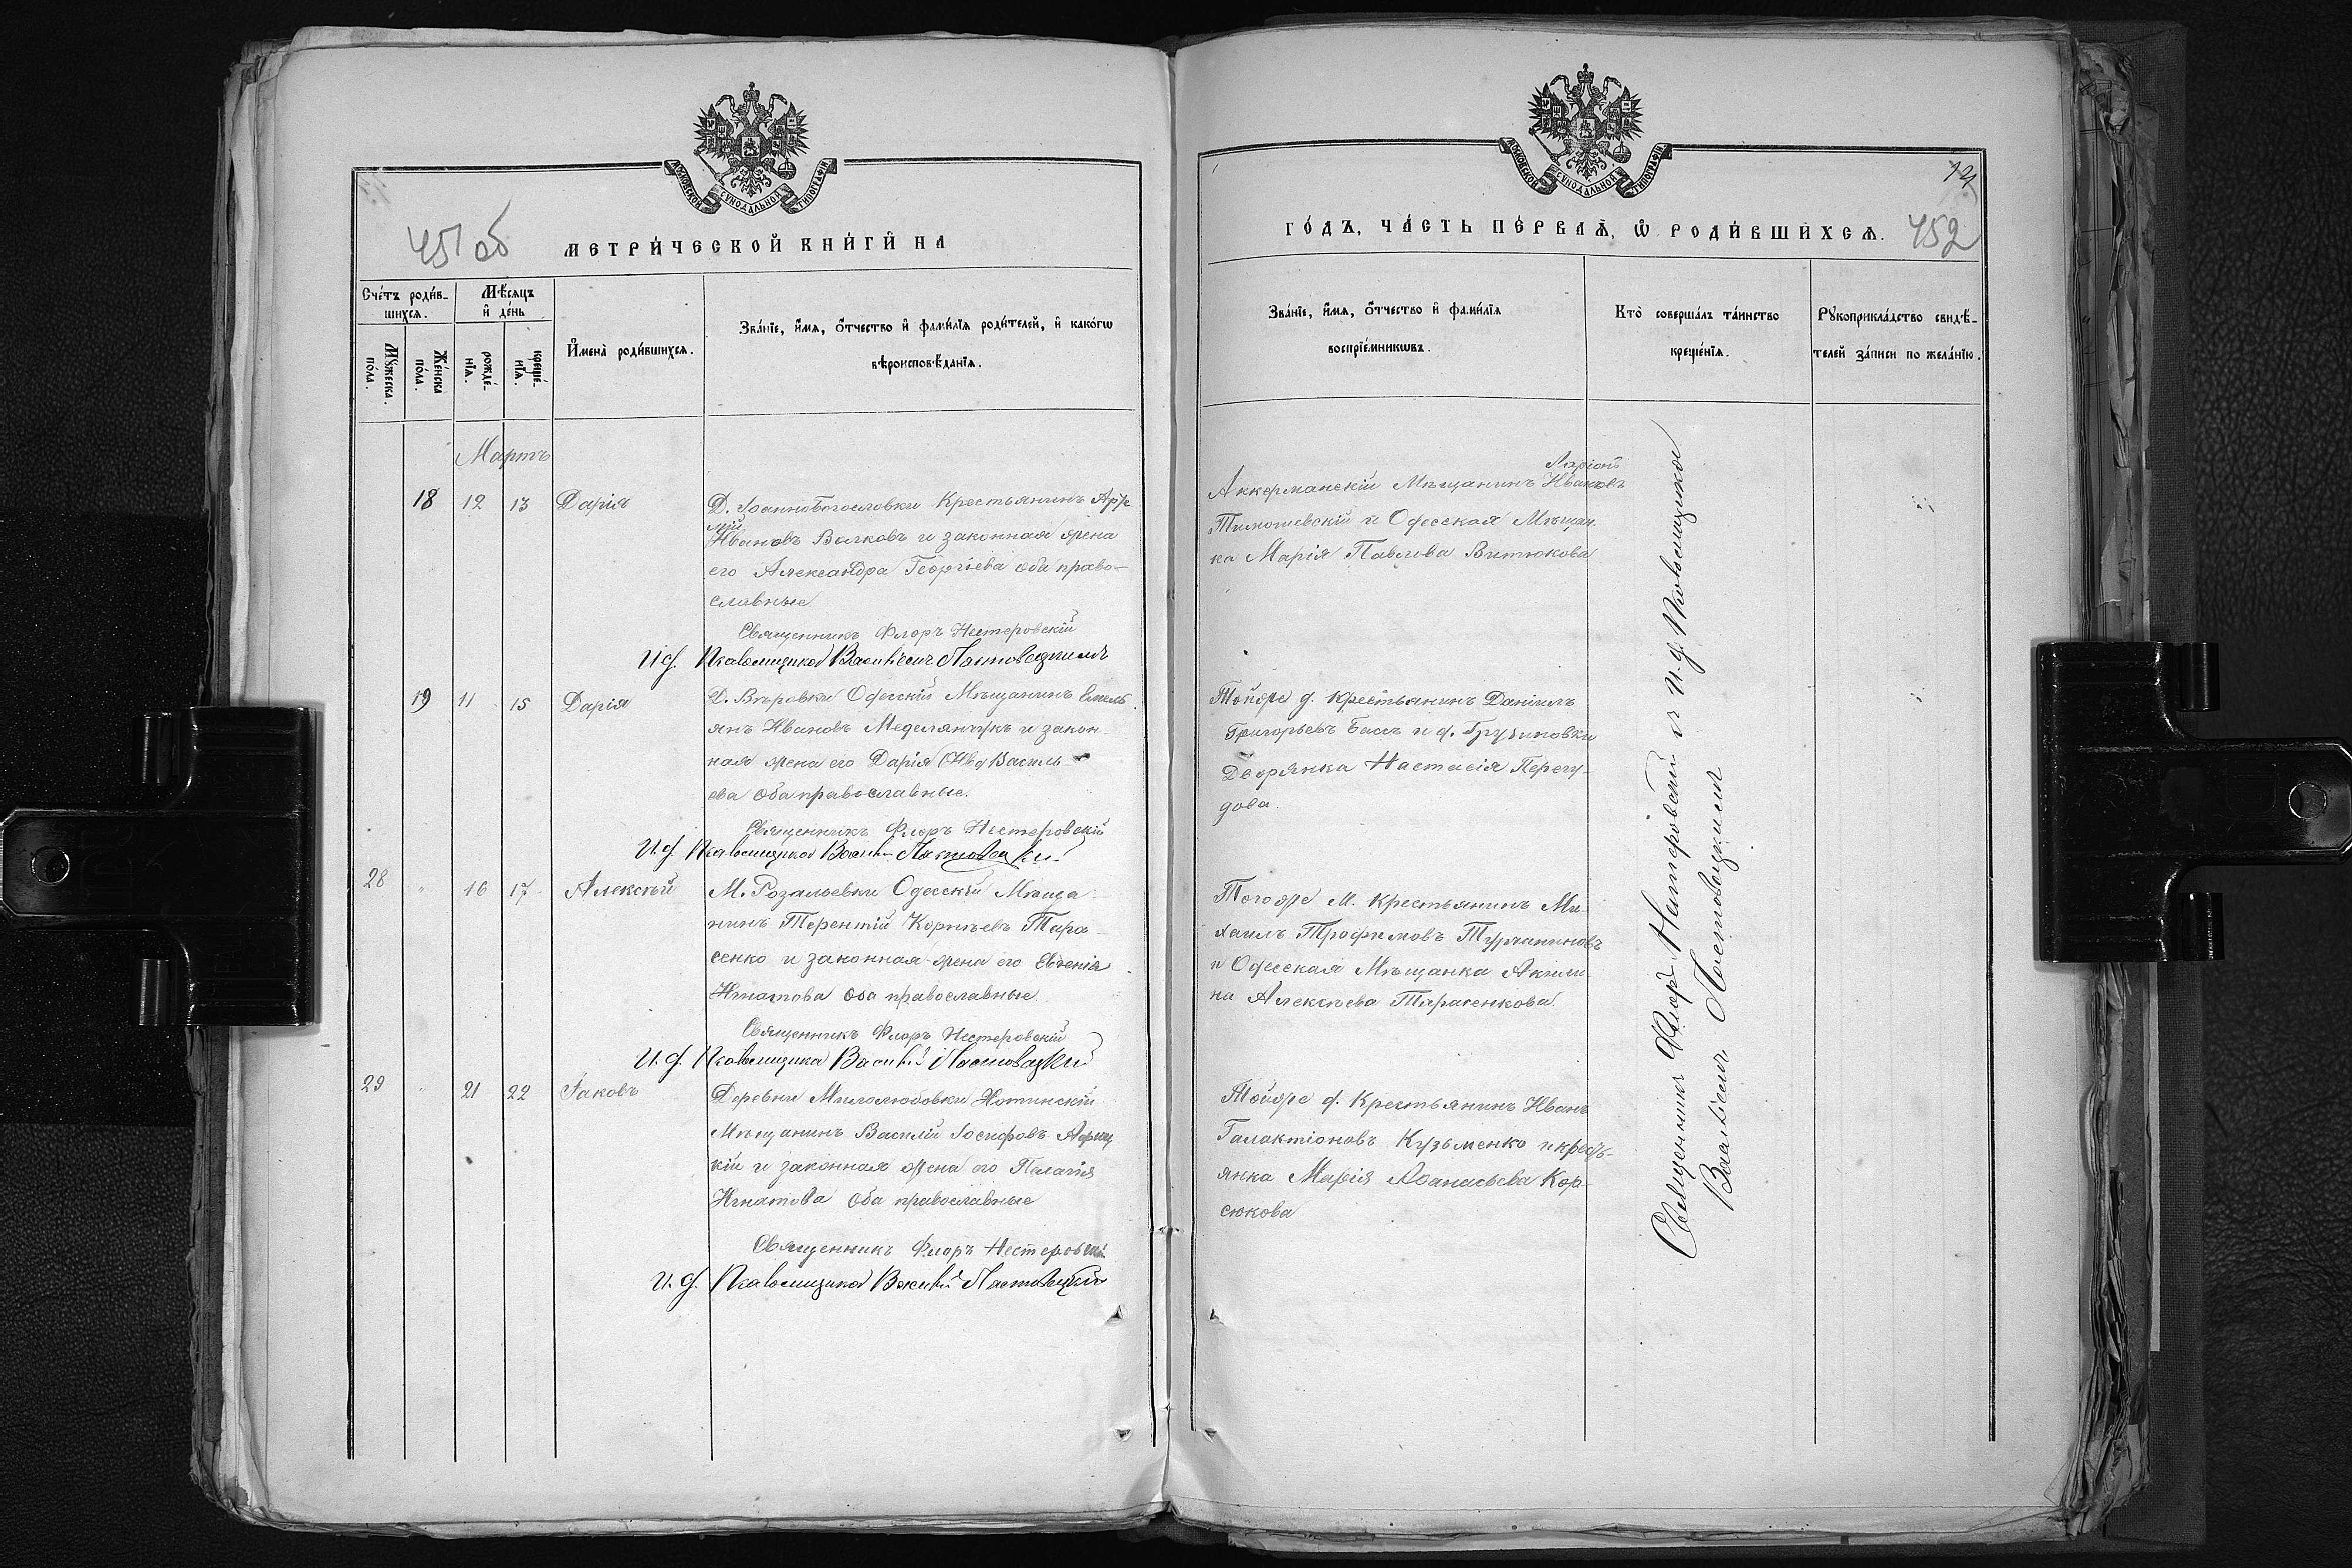 МОСКОВСКОЙ СѴНОДАЛЬНОЙ ТИПОГРАФІИ
451 об
МЕТРИ́ЧЕСКОЙ КНИ́ГИ НА
Сче́тъ роди́в-
шихся.
Мѣ́сяцъ
и де́нь
Му́жеска по́ла.
Же́нска по́ла.
рожде́-
нїѧ.
креще́-
нїѧ.
И҆мена̀ роди́вшихсѧ.
Зва́нїе, и҆́мѧ, ѻ҆́тчество и҆ фами́лїѧ роди́телей, и҆ како́гѡ
вѣроисповѣ́данїѧ.
Мартъ
18 12 13 Дарія
Д. Іоанновогословки Крестьянинъ
Ивановъ Волковъ и законная жена
его Александра Георгіева оба право-
славные
Священникъ Флоръ Нестеровскій
И. д. Псаломщика Василій
19 11 15 Дарія
Д. Вѣровки Одесскій Мѣщанинъ Емель
янъ Ивановъ Меделянчукъ и закон-
ная жена его Дарія Василь-
ева оба православные.
Священникъ Флоръ Нестеровскій
И. д. Псаломщика
28 " 16 17 Алексѣй
М. Розальевки Одесскій Мѣща-
нинъ Терентій Корнѣевъ Тара-
сенко и законная жена его Евгенія
Игнатова оба православные
Священникъ Флоръ Нестеровскій
И. д. Псаломщика Василій Постовецкій
29 " 21 22 Іаковъ
Деревни Милолюбовки Хотинскій
Мѣщанинъ Василій Іосифовъ
кій и законная жена его Пелагія
Игнатова оба православные
Священникъ Флоръ Нестеровскій
И. д. Псаломщика Василій Постовецкій
МОСКОВСКОЙ СѴНОДАЛЬНОЙ ТИПОГРАФІИ
ГО́ДЪ, ЧА́СТЬ ПЕ́РВАѦ, Ѽ РОДИ́ВШИХСѦ.
452
Зва́нїе, и҆́мѧ, ѻ҆́тчество и҆ фами́лїѧ
воспрїе́мникѡвъ.
Кто̀ соверша́лъ та́инство
креще́нїѧ.
Рꙋкоприкла́дство свидѣ́-
телей за́писи по жела́нїю.
Ларіонъ
Аккерманскій Мѣщанинъ Ивановъ
Тимошевскій и Одесская Мѣщан-
ка Марія Павлова Витюкова
Тойже д. Крестьянинъ Даніилъ
Григорьевъ Басъ и д. Грузиновки
Дворянка Настасія Перегу-
дова.
Тогоже м. Крестьянинъ Ми-
хаилъ Трофимовъ
и Одесская Мѣщанка Акили-
на Алексѣева Тарасенкова
Тойже д. Крестьянинъ Иванъ
Галактіоновъ Кузьменко и крест-
янка Марія Аѳанасьева Кор-
сюкова
Священникъ Флоръ Нестеровскій и И. д. Псаломщика
Василій Постовецкій